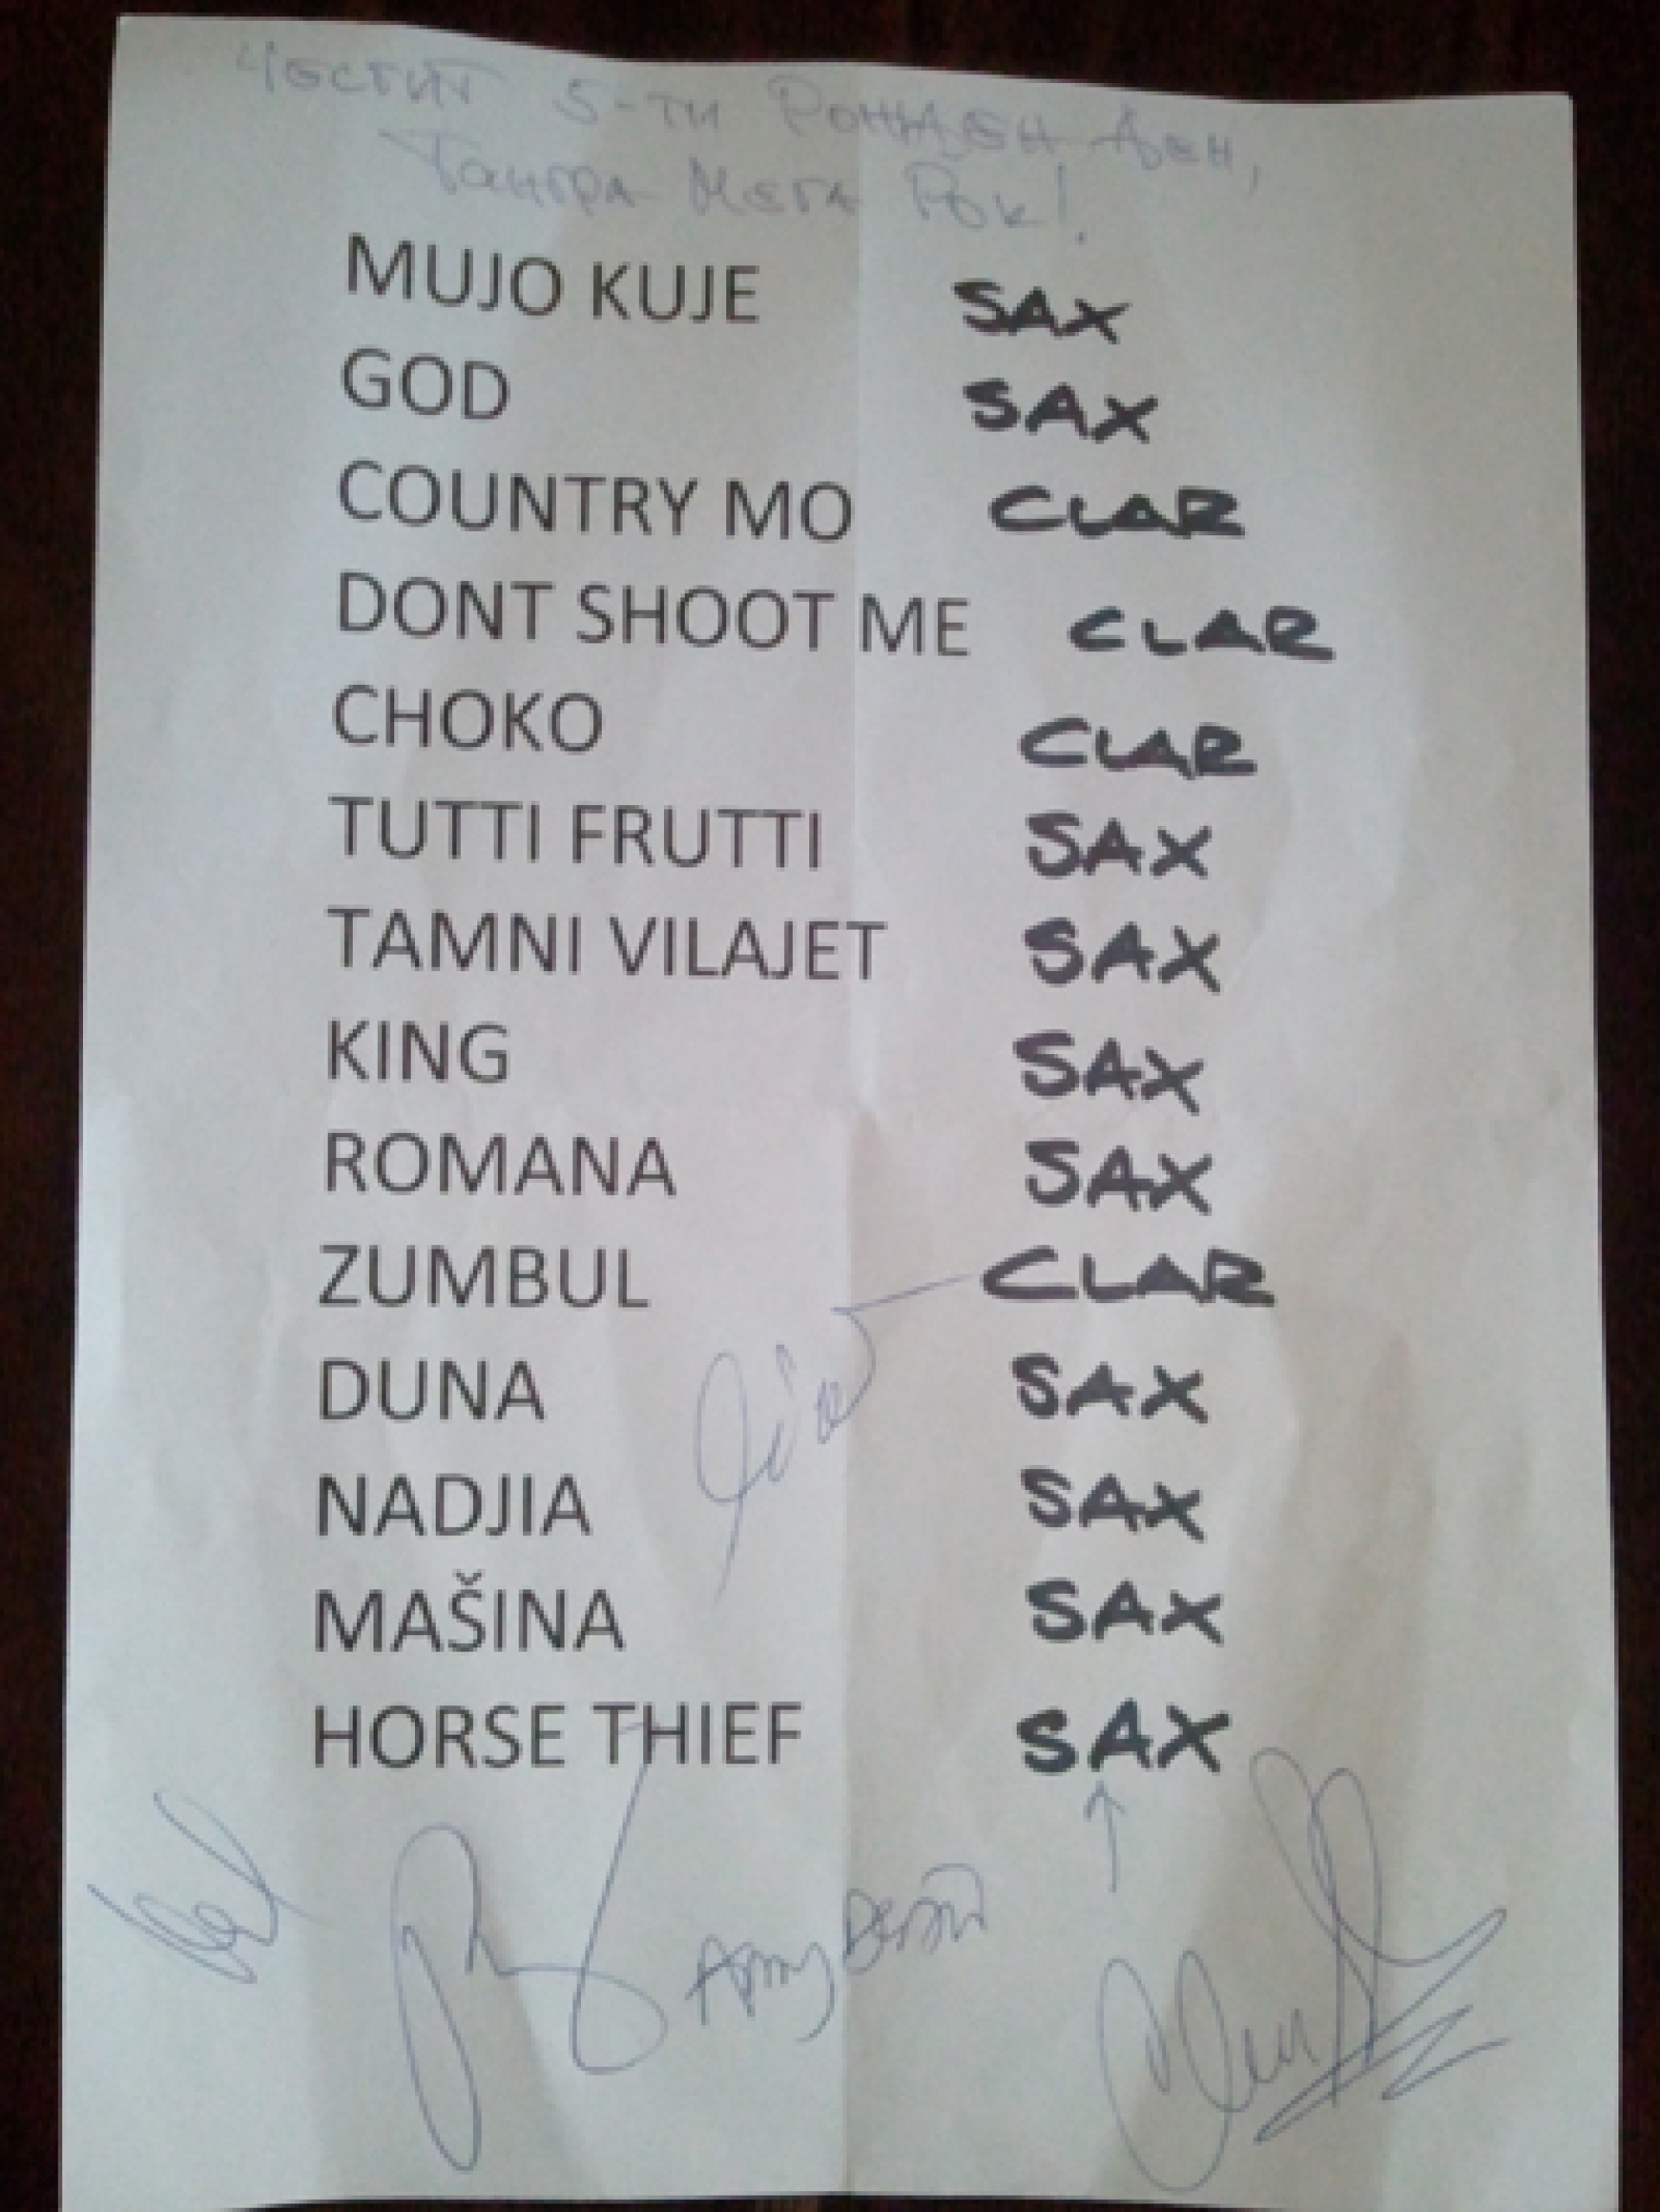 Честит 5-ти Рожден ден,
Тангра Мега Рок!
MUJO KUJE SAX
GOD SAX
COUNTRY MO CLAR
DONT SHOOT ME CLAR
CHOKO CLAR
TUTTI FRUTTI SAX
TAMNI VILAJET SAX
KING SAX
ROMANA SAX
ZUMBUL CLAR
DUNA SAX
NADJIA SAX
MAŠINA SAX
HORSE THIEF SAX